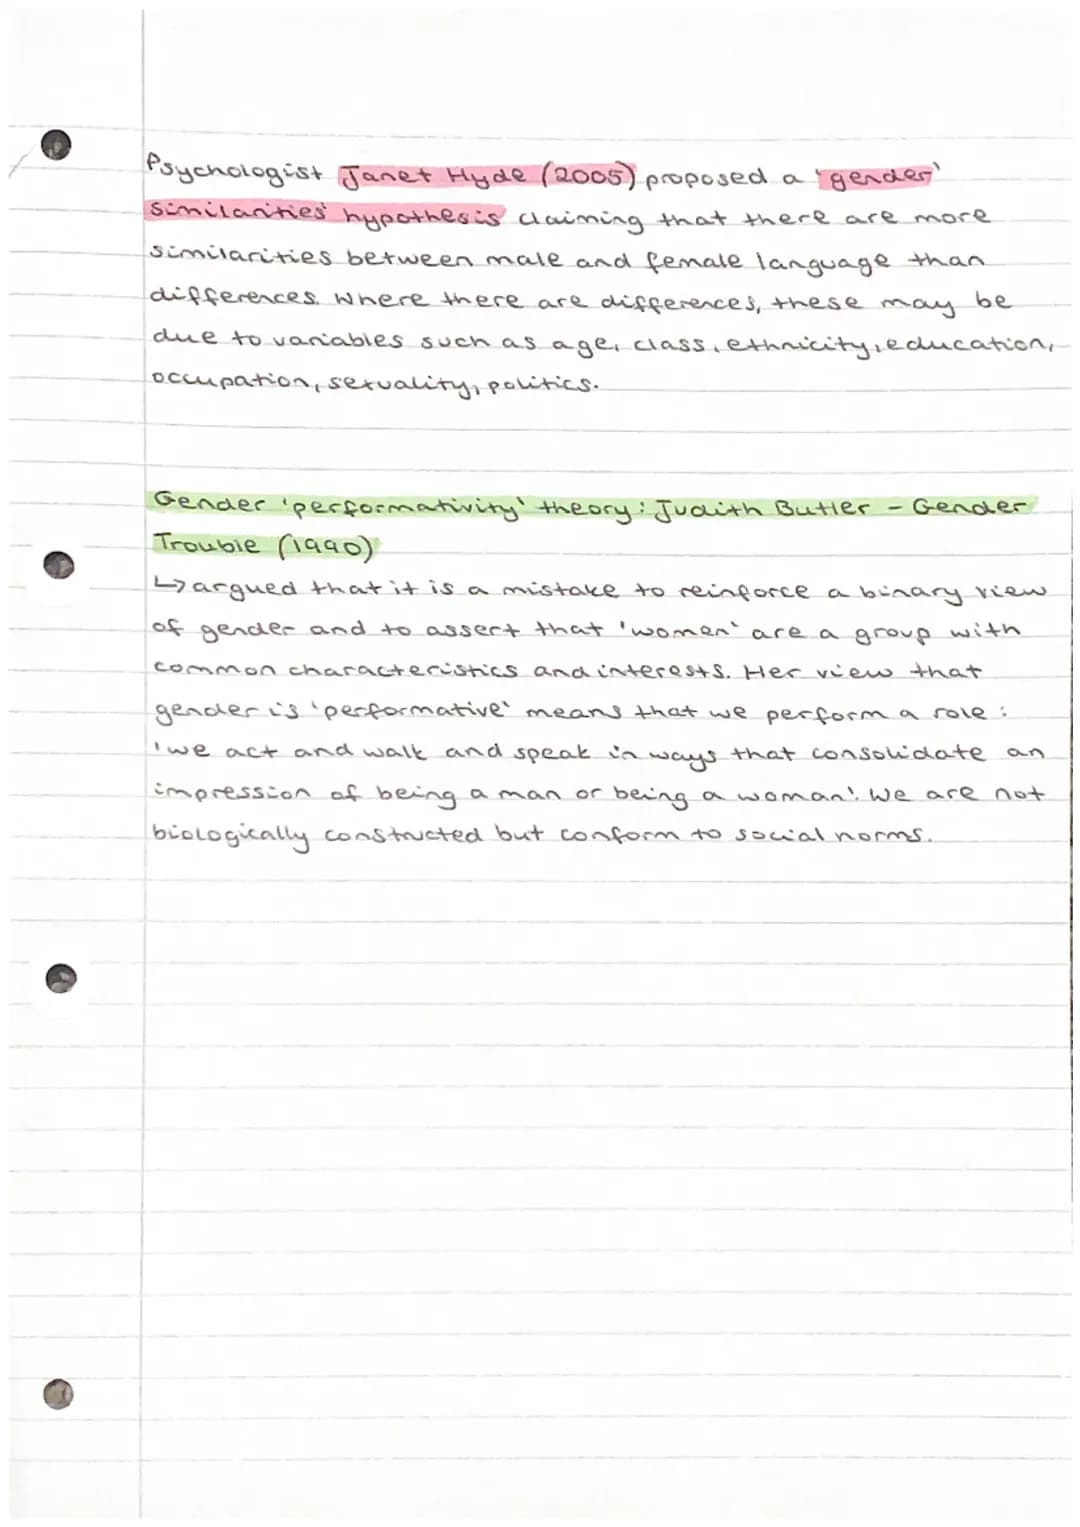 Psychologist Janet Hyde (2005) proposed a 'gender
similarities' hypothesis claiming that there are more
similarities between male and female language than
differences. Where there are differences, these may be
due to variables such as age, class, ethnicity, education,
occupation, sexuality, politics.
Gender 'performativity' theory: Judith Butler - Gender
Trouble (1990)
↳ argued that it is a mistake to reinforce a binary view
of gender and to assert that 'women' are a group with
common characteristics and interests. Her view that
gender is 'performative' means that we perform a role:
'we act and walk and speak in ways that consolidate an
impression of being a man or being a woman'. We are not
biologically constructed but conform to social norms.